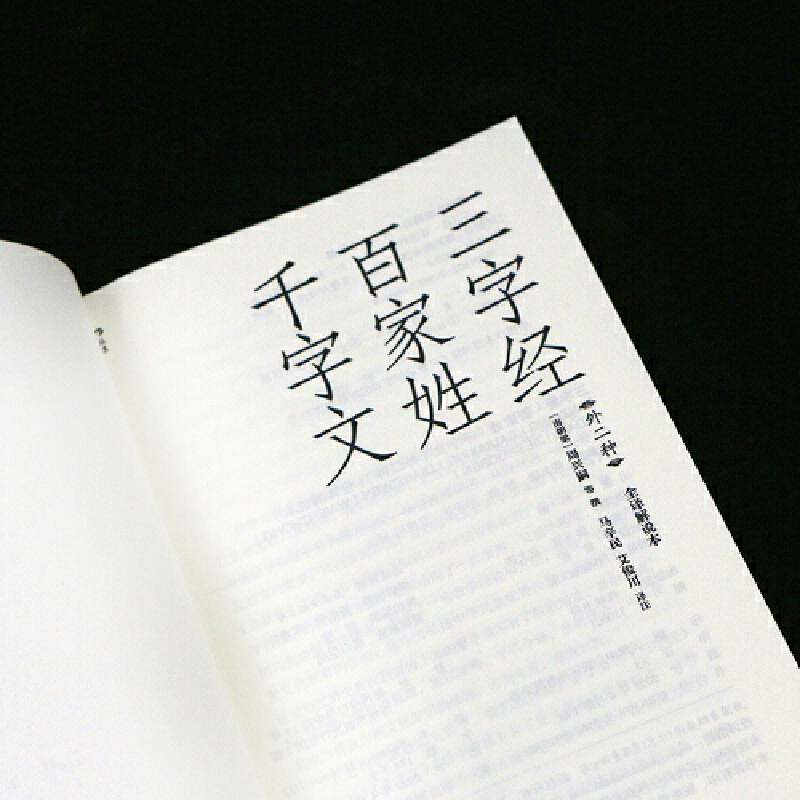 三字经
百家姓
千字文
外二种
全译解说本
[南朝梁]周兴嗣 等 撰
马辛民 艾俊川 译注